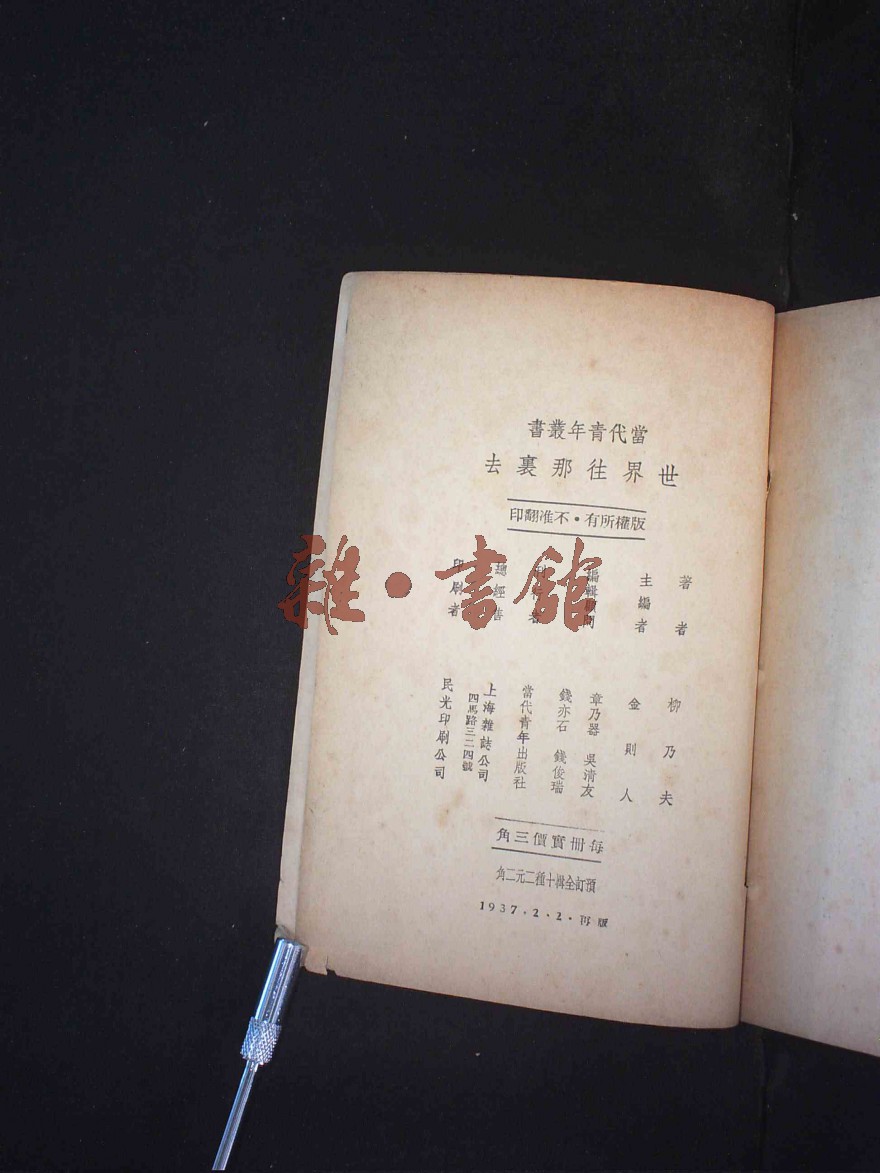 當代青年叢書
世界往那裏去
版權所有•不准翻印
著者 柳乃夫
主編者 金則人
編輯顧問 章乃器 吳清友
錢亦石 錢俊瑞
刊行者 當代青年出版社
總經售 上海雜誌公司
四馬路三二四號
印刷者 民光印刷公司
每冊實價三角
預訂全輯十種二元二角
1937.2.2.再版
雜•書館